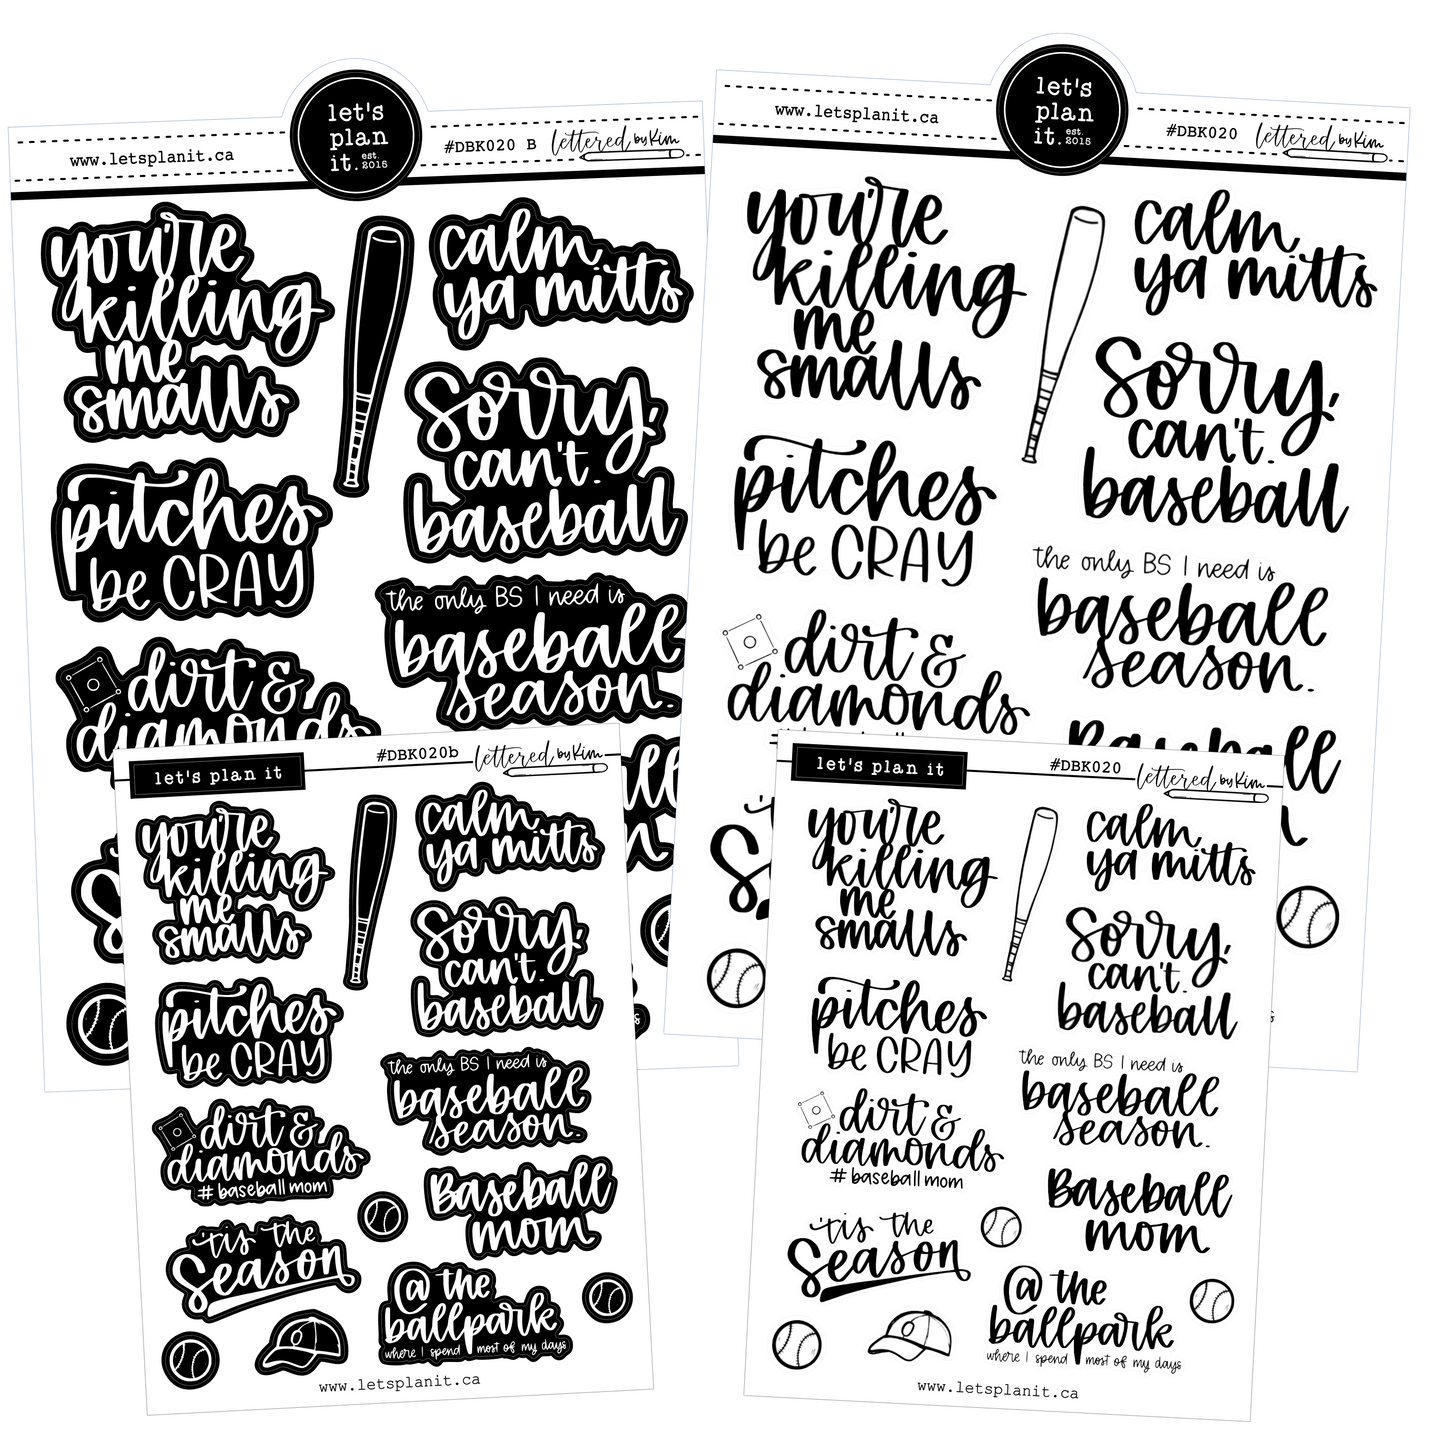 www.letsplanit.ca
let's
plan
it. est. 2015
#DBK020 B
lettered by Kim
you're
killing
me
smalls
calm
ya mitts
Sorry,
can't.
baseball
pitches
be CRAY
the only BS I need is
baseball
season.
dirt &
diamonds
www.letsplanit.ca
let's
plan
it. est. 2015
#DBK020
lettered by Kim
you're
killing
me
smalls
calm
ya mitts
Sorry,
can't.
baseball
pitches
be CRAY
the only BS I need is
baseball
season.
dirt &
diamonds
Baseball
let's plan it
#DBK020b
lettered by Kim
you're
killing
me
smalls
calm
ya mitts
Sorry,
can't.
baseball
pitches
be CRAY
the only BS I need is
baseball
season.
dirt &
diamonds
# baseball mom
Baseball
mom
'tis the
Season
@ the
ballpark
where I spend most of my days
www.letsplanit.ca
let's plan it
#DBK020
lettered by Kim
you're
killing
me
smalls
calm
ya mitts
Sorry,
can't.
baseball
pitches
be CRAY
the only BS I need is
baseball
season.
dirt &
diamonds
# baseball mom
Baseball
mom
'tis the
Season
@ the
ballpark
where I spend most of my days
www.letsplanit.ca